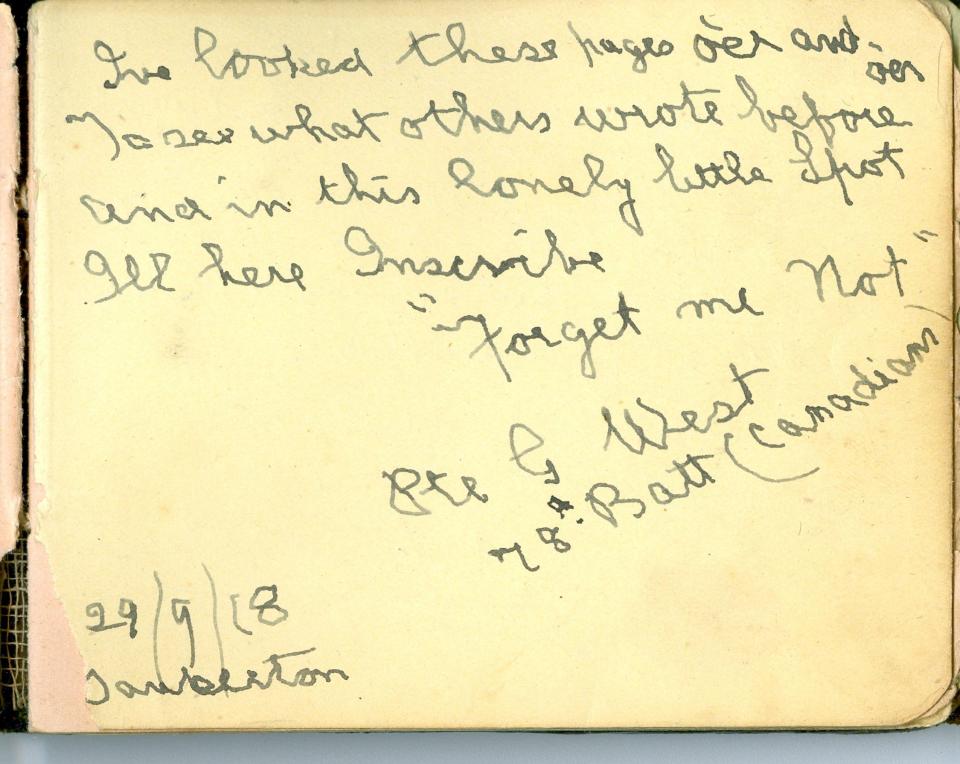 I've looked these pages o'er and o'er
To see what others wrote before
and in this lonely little Spot
I'll here Inscribe
"Forget me Not"
Pte G West
78th Batt (Canadians)
29/9/18
Saunderton